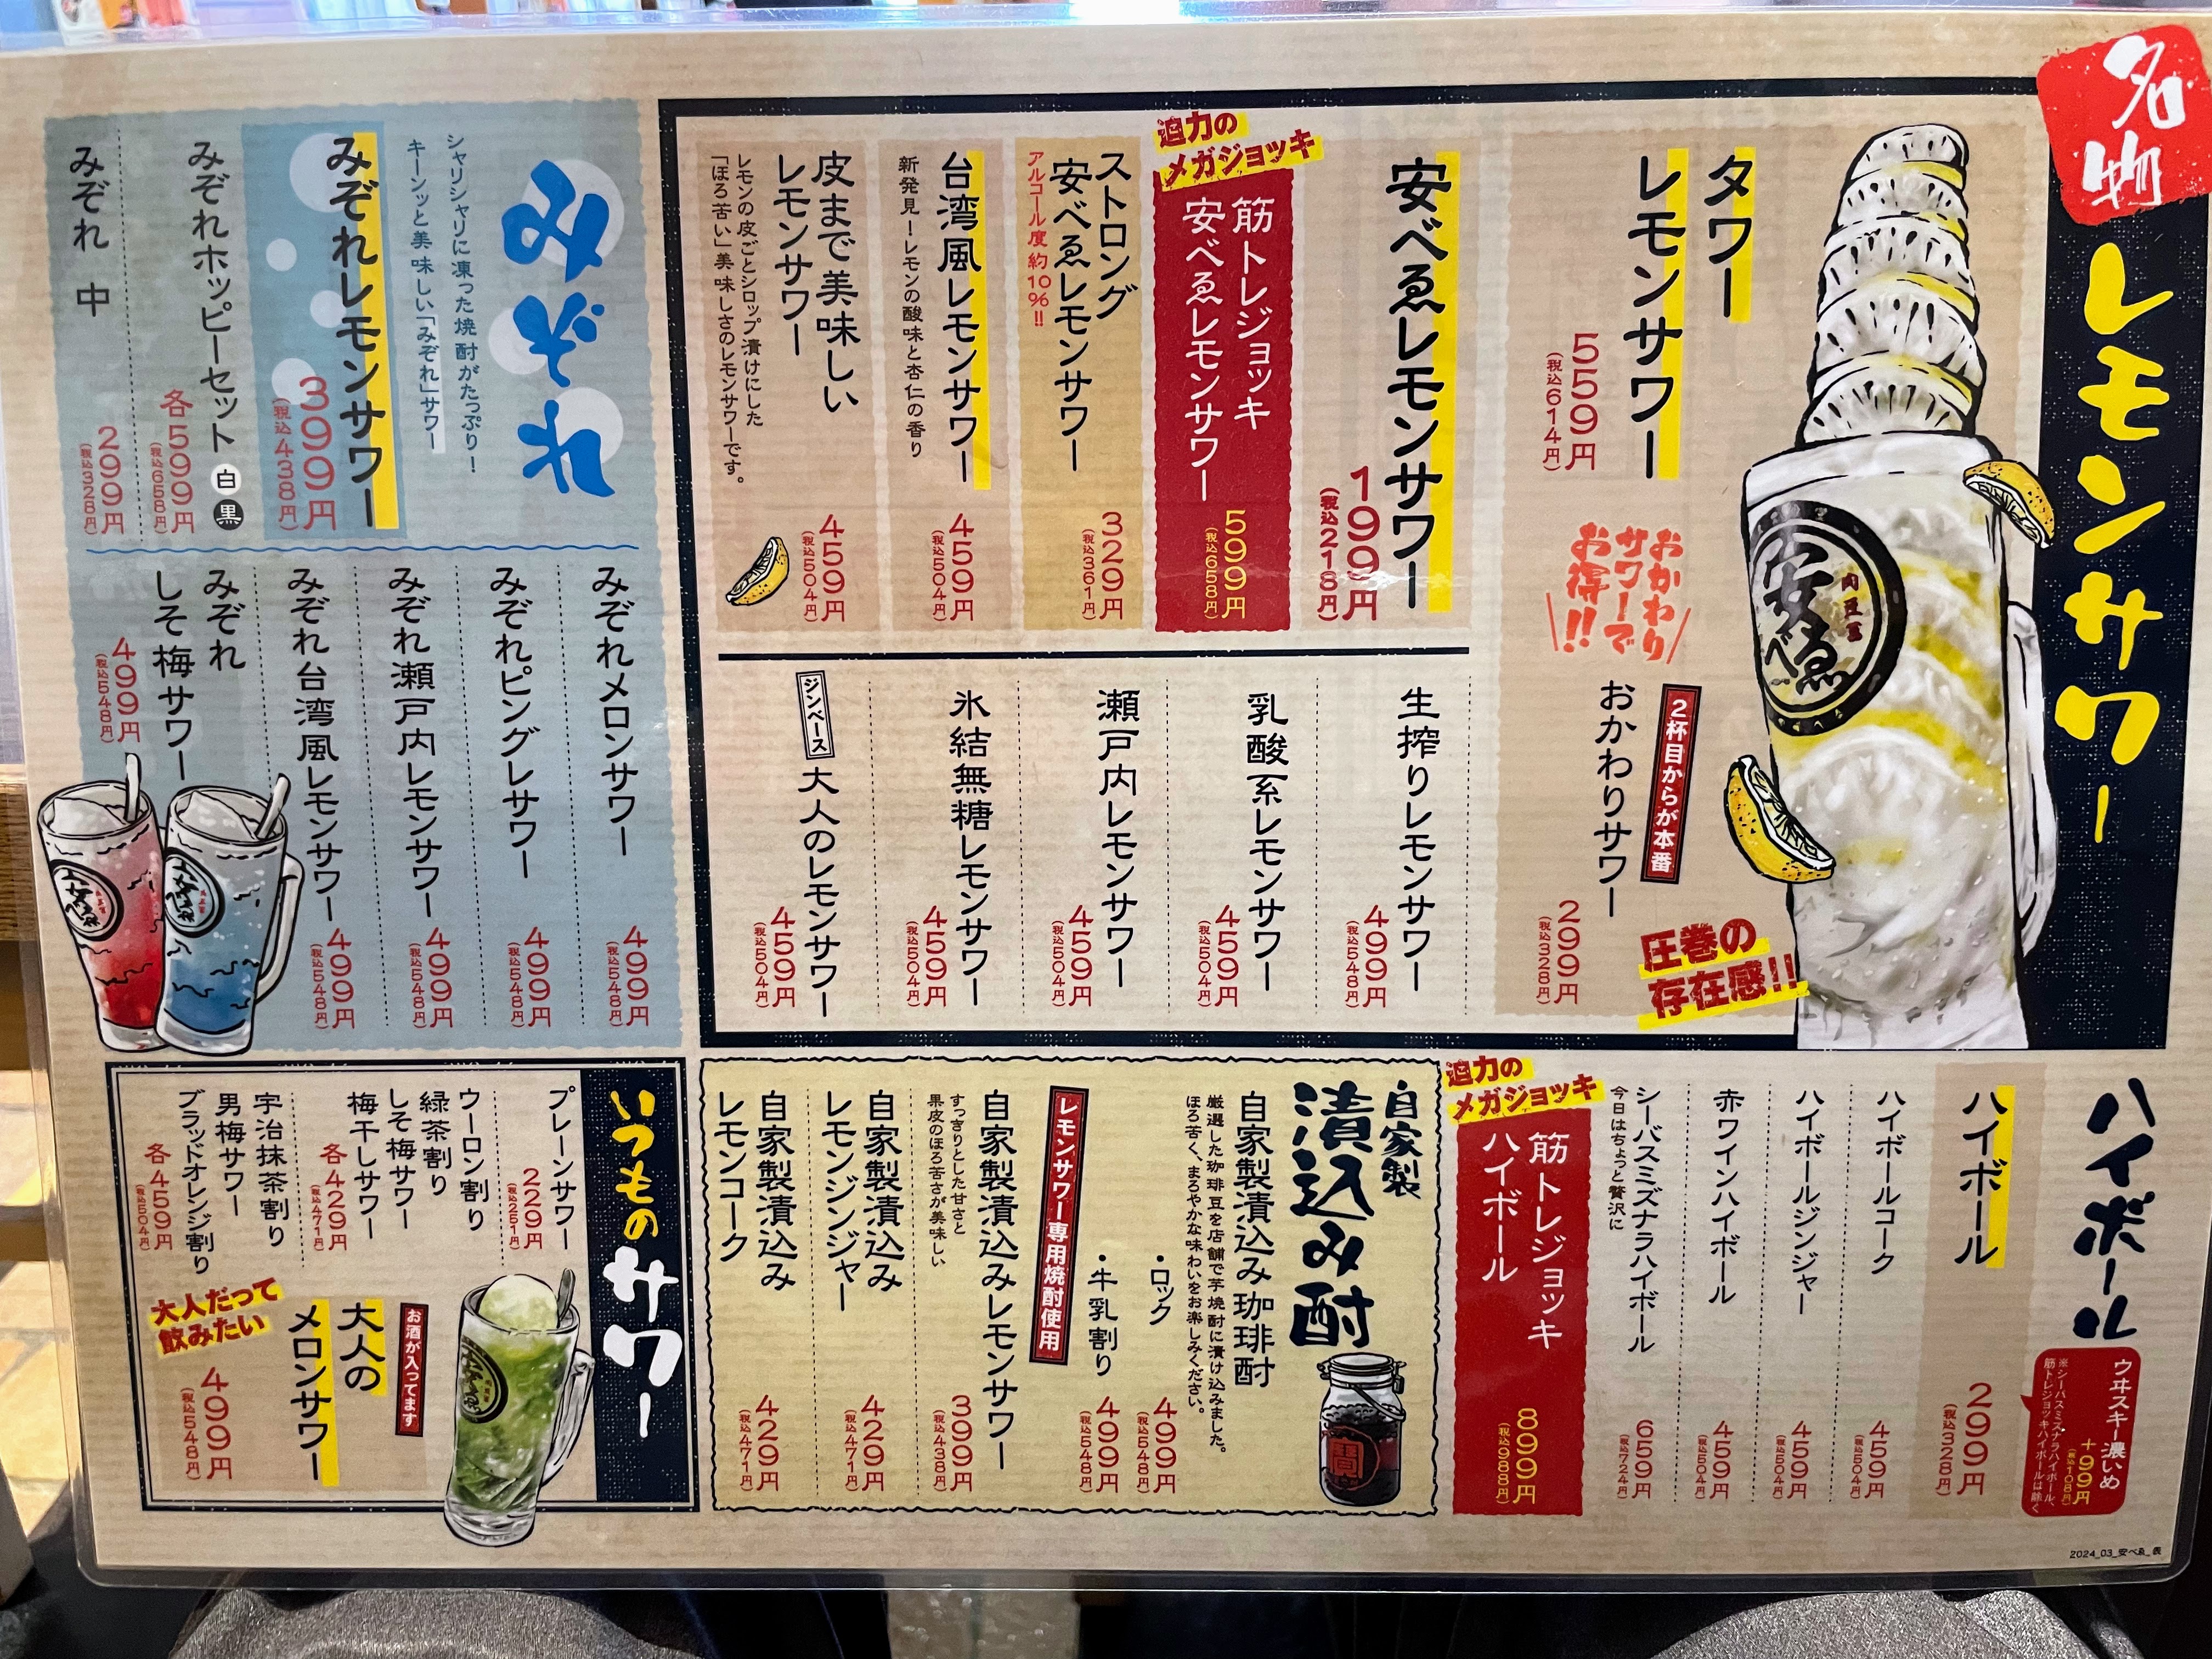 名物
レモンサワー
タワー
レモンサワー
559円
(税込614円)
おかわり
サワーで
お得!!
2杯目からが本番
おかわりサワー
299円
(税込328円)
圧巻の
存在感!!
肉豆冨
安べゑ
安べゑレモンサワー
199円
(税込218円)
迫力の
メガジョッキ
筋トレジョッキ
安べゑレモンサワー
599円
(税込658円)
ストロング
安べゑレモンサワー
アルコール度約10%!!
329円
(税込361円)
台湾風レモンサワー
新発見!レモンの酸味と杏仁の香り
459円
(税込504円)
皮まで美味しい
レモンサワー
レモンの皮ごとシロップ漬けにした
「ほろ苦い」美味しさのレモンサワーです。
459円
(税込504円)
生搾りレモンサワー
499円
(税込548円)
乳酸系レモンサワー
459円
(税込504円)
瀬戸内レモンサワー
459円
(税込504円)
氷結無糖レモンサワー
459円
(税込504円)
ジンベース
大人のレモンサワー
459円
(税込504円)
みぞれ
シャリシャリに凍った焼酎がたっぷり!
キーンッと美味しい「みぞれ」サワー
みぞれレモンサワー
399円
(税込438円)
みぞれホッピーセット 白 黒
各599円
(税込658円)
みぞれ 中
299円
(税込328円)
みぞれメロンサワー
499円
(税込548円)
みぞれピングレサワー
499円
(税込548円)
みぞれ瀬戸内レモンサワー
499円
(税込548円)
みぞれ台湾風レモンサワー
499円
(税込548円)
みぞれ
しそ梅サワー
499円
(税込548円)
ハイボール
ウヰスキー濃いめ
+99円
(税込108円)
※シーバスミズナラハイボール、
筋トレジョッキハイボールは除く
ハイボール
299円
(税込328円)
ハイボールコーク
459円
(税込504円)
ハイボールジンジャー
459円
(税込504円)
赤ワインハイボール
459円
(税込504円)
シーバスミズナラハイボール
今日はちょっと贅沢に
659円
(税込724円)
迫力の
メガジョッキ
筋トレジョッキ
ハイボール
899円
(税込988円)
自家製
漬込み酎
自家製漬込み珈琲酎
厳選した珈琲豆を店舗で芋焼酎に漬け込みました。
ほろ苦く、まろやかな味わいをお楽しみください。
・ロック
499円
(税込548円)
・牛乳割り
499円
(税込548円)
レモンサワー専用焼酎使用
自家製漬込みレモンサワー
すっきりとした甘さと
果皮のほろ苦さが美味しい
399円
(税込438円)
自家製漬込み
レモンジンジャー
429円
(税込471円)
自家製漬込み
レモンコーク
429円
(税込471円)
いつものサワー
プレーンサワー
229円
(税込251円)
ウーロン割り
緑茶割り
しそ梅サワー
梅干しサワー
各429円
(税込471円)
宇治抹茶割り
男梅サワー
ブラッドオレンジ割り
各459円
(税込504円)
お酒が入ってます
大人の
メロンサワー
大人だって
飲みたい
499円
(税込548円)
2024_03_安べゑ_表